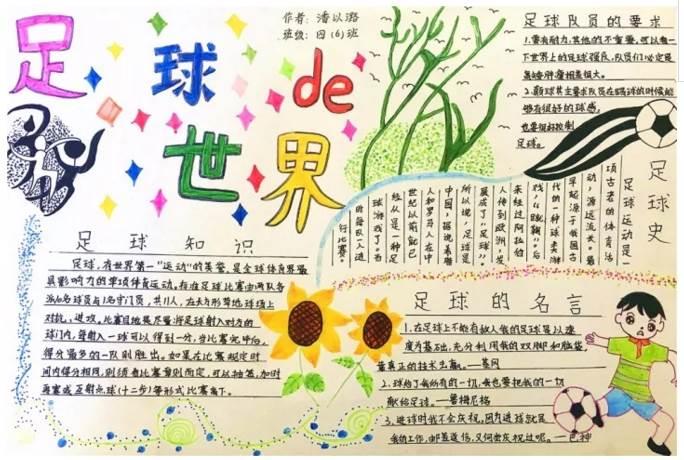 足球de
世界
作者：潘以潞
班级：四(6)班
足球队员的要求
1.要有耐力,其他的不重要,可以看一
下世界上的足球强队,队员们必定是
高矮胖瘦相差很大。
2.颠球其主要求队员在踢球的时候能
够有很好的球感,
也要很好控制
足球。
足球史
足球运动是一
项古老的体育活
动,源远流长。最
早起源于我国古
代的一种球类游
戏"蹴鞠",后
来经过阿拉伯
人传到欧洲,发
展成了"足球"。
所以说,足球是
中国,据说希腊
人和罗马人在中
世纪以前就已
经从是一种足
球游戏了。
行比赛。
足球知识
足球,有世界第一"运动"的美誉,是全球体育界最
具影响力的单项体育运动。标准足球比赛由两队各
派10名球员与1名守门员,共11人,在长方形草地球场上
对抗、进攻,比赛目地是尽量将足球射入对方的
球门内,每射入一球可以得到一分,当比赛完毕后,
得分最多的一队则胜出。如果在比赛规定时
间内得分相同,则须看比赛章则而定,可以抽签,加时
再赛或互射点球(十二步)等形式比赛高下。
足球的名言
1、在足球上不能有敌人我的足球是以速
度为基础,充分利用我的双脚和脑袋,
靠真正的技术出赢。
2.球给了我所有的一切,我也要把我的一切
献给足球。——普梅尼格
3、进球时我不会庆祝,因为进球就是
我的工作,邮差送信,又何尝庆祝过呢。——巴神